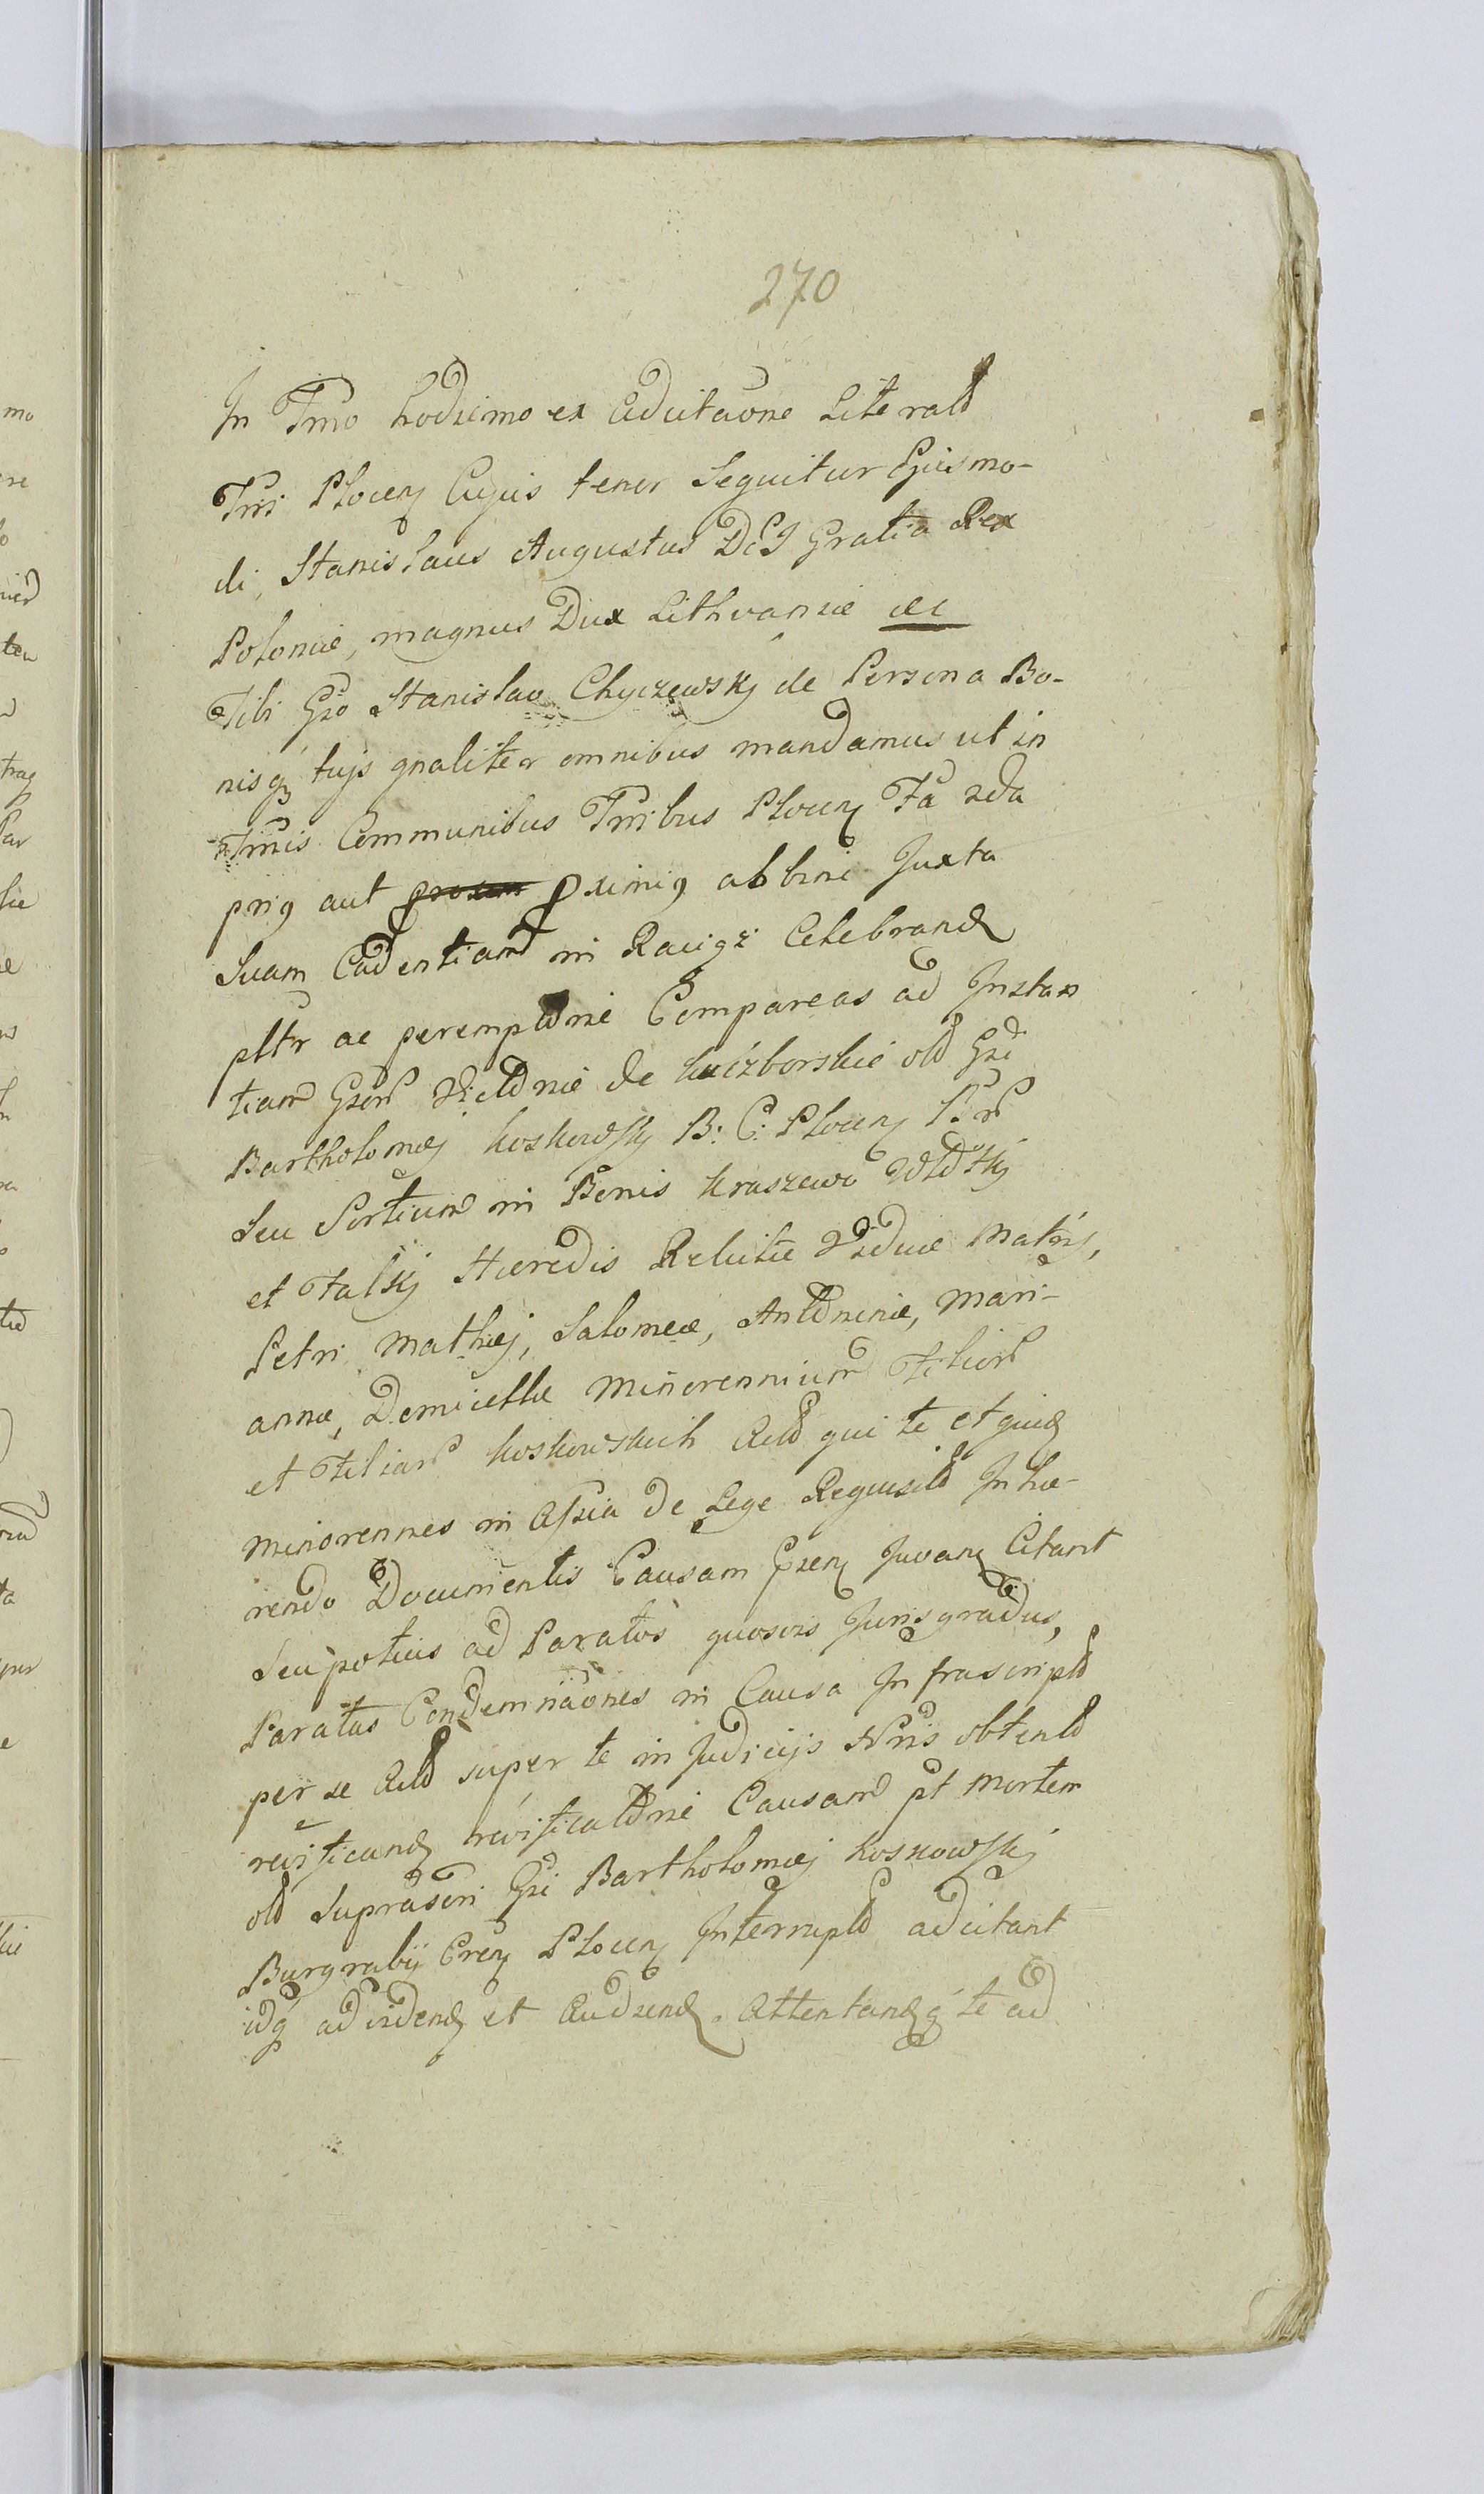 270
In Tmo hodierno ex Adcitaone Literali
Tmi Plocen Cujus tenor Sequitur Ejusmo-
di, Stanislaus Augustus DEI Gratia Rex
Poloniæ, magnus Dux Lithvaniæ &c
Tibi Gso Stanislao Chyczewskj de Persona Bo-
nisq tujs gnaliter omnibus mandamus ut in
Tmis Communibus Tmibus Plocen Fa 2da
pnis aut proxim pximis abhinc Juxta
Suam Cadentiam in Raciąż Celebrand
pltr ac peremptorie Compareas ad Instan
tiam Gsor Victoriæ de Kuczborskie olim Gsi
Bartholomæj Koskowskj B: C: Plocen Bor
Seu Sortium in Bonis Kraszewo
et Falkj Hæredis Relictæ Viduæ Matris,
Petri Mathæj, Salomeæ, Antoninæ, Mari-
annæ, Domicellæ Minorennium Filior
et Filiar Koskowskich Act qui te et quid
minorennes in Assia de Lege Requisita Inhæ-
rendo Documentis Causam Psen Juvan Citant
Seu potius ad Paratos quosvis Juris gradus,
Paratas Condemnaones in Causa Infrascripta
per se Act super te in Judicijs Nris obtent
revificand revificatorie Causam pt mortem
olim Suprascri Gsi Bartholomæj Koskowskj
Burgrabij Cren Plocen Interrupt adcitant
idq ad vidend et Audiend. Attentandq te ad